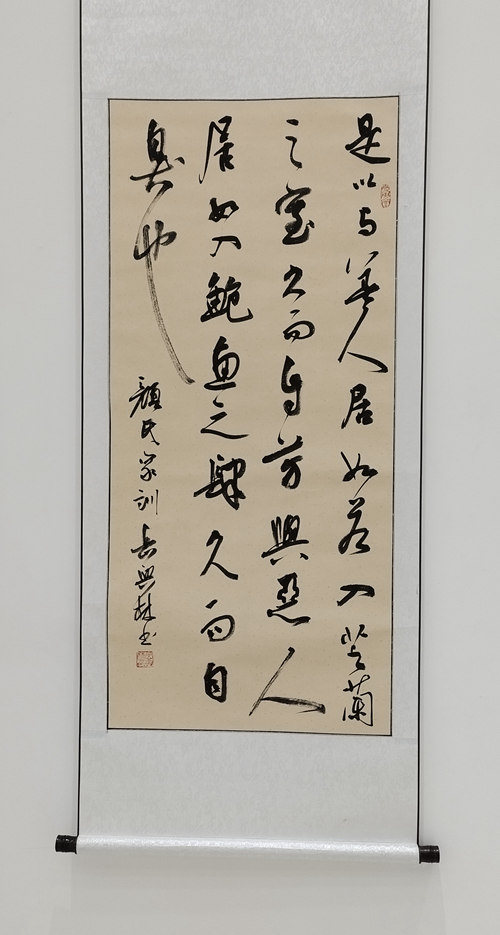 是以与善人居如若入芷兰
之室久而自芳興恶人
居如入鲍鱼之肆久而自
臭也
顏氏家训岳興林书